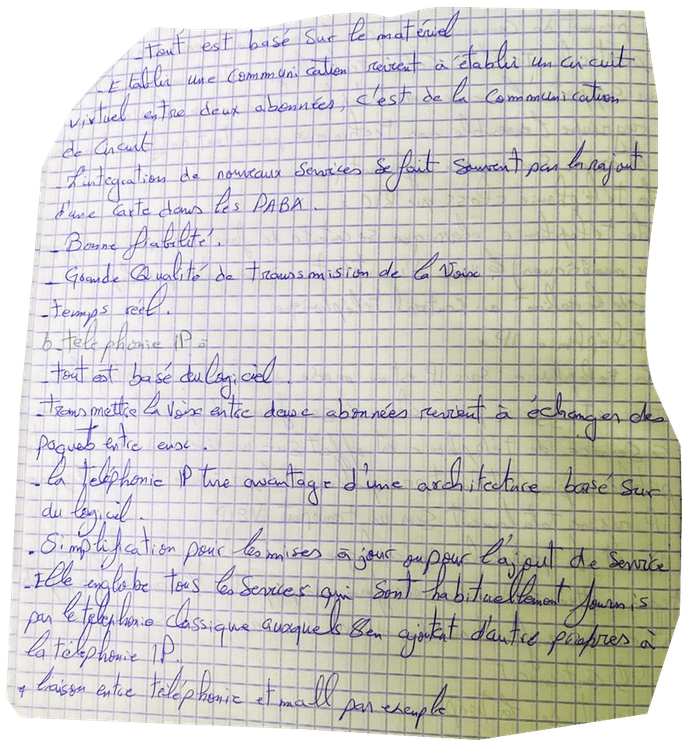 - tout est basé sur le matériel
- Etablir une communication revient à établir un circuit
virtuel entre deux abonnées, c'est de la communication
de circuit
- l'integration de nouveaux services se fait souvent par le rajout
d'une carte dans les PABX.
- Bonne fiabilité.
- Grande Qualité de transsmision de la Voix
- temps reel.
b- téléphonie IP :
- tout est basé du logiciel.
- transmettre la voix entre deux abonnées revient à échanger des
paquets entre eux.
- la telephonie IP tire avantage d'une architecture basé sur
du logiciel.
- Simplification pour les mises à jour ou pour l'ajout de service
- Elle englobe tous les Services qui sont habituellement fournis
par le telephonie classique auxquels s'en ajoutent d'autre propres à
la téléphonie IP.
+ liaison entre téléphonie et mail par exemple